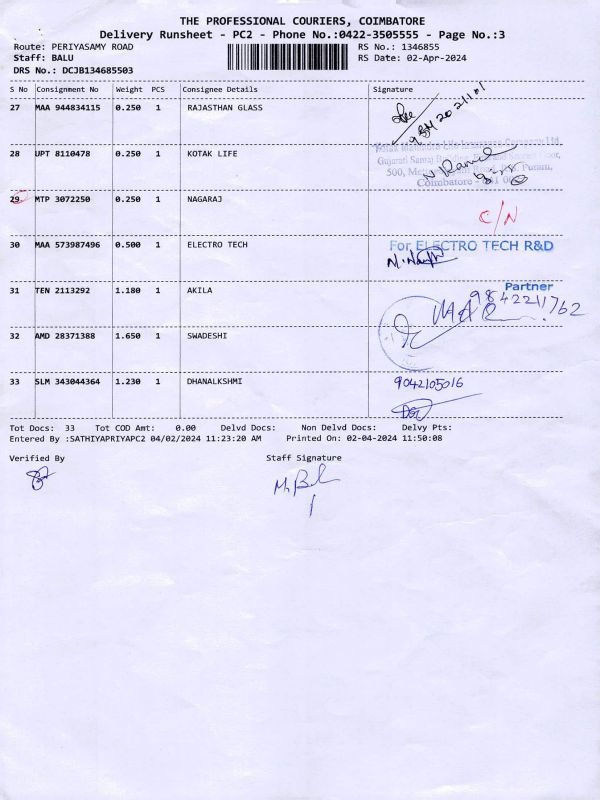 THE PROFESSIONAL COURIERS, COIMBATORE
Delivery Runsheet - PC2 - Phone No.:0422-3505555 - Page No.:3
Route: PERIYASAMY ROAD
RS No.: 1346855
Staff: BALU
RS Date: 02-Apr-2024
DRS No.: DCJB134685503
S No Consignment No Weight PCS Consignee Details Signature
27 MAA 944834115 0.250 1 RAJASTHAN GLASS
28 UPT 8110478 0.250 1 KOTAK LIFE
Kotak Mahindra Life Insurance Company Ltd.
Gujarati Samaj Building, Floor,
500, Me Road, R.S. Puram,
Coimbatore - 641 00
29 MTP 3072250 0.250 1 NAGARAJ
C/N
30 MAA 573987496 0.500 1 ELECTRO TECH For ELECTRO TECH R&D
Partner
31 TEN 2113292 1.180 1 AKILA
9842211762
32 AMD 28371388 1.650 1 SWADESHI
33 SLM 343044364 1.230 1 DHANALKSHMI 9042105016
Tot Docs: 33 Tot COD Amt: 0.00 Delvd Docs: Non Delvd Docs: Delvy Pts:
Entered By :SATHIYAPRIYAPC2 04/02/2024 11:23:20 AM Printed On: 02-04-2024 11:50:08
Verified By Staff Signature